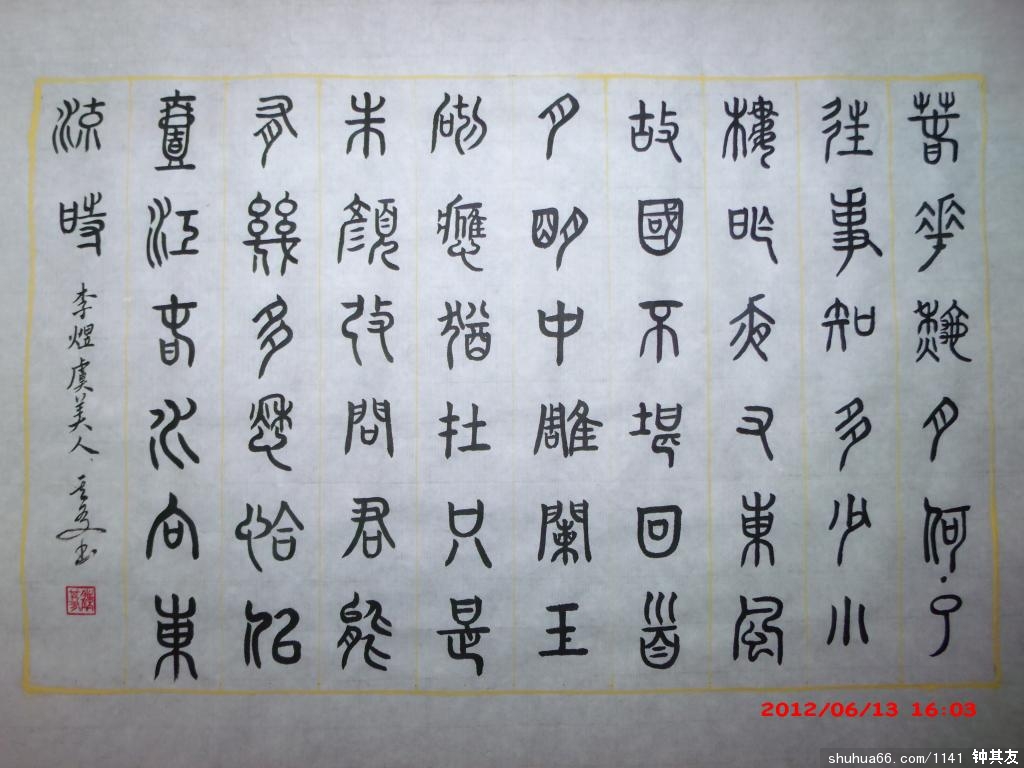 春花秋月何了
往事知多少小
樓昨夜又東風
故國不堪回首
月明中雕闌玉
砌應猶在只是
朱顏改問君能
有幾多愁恰似
壹江春水向東
流時 李煜虞美人 其友书
2012/06/13 16:03
shuhua66.com/1141 钟其友